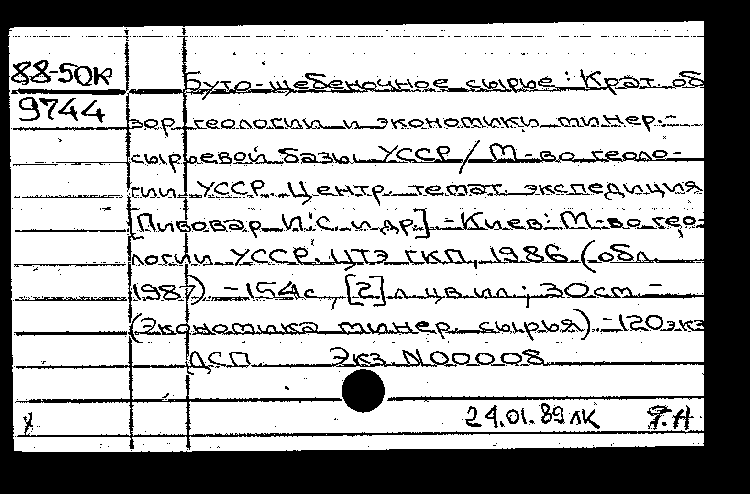 88-50к
Буто-щебеночное сырье: Крат. об
9744
зор геологии и экономики минер.-
сырьевой базы УССР / М-во геоло-
гии УССР. Центр. темат. экспедиция
[Пивовар И.С. и др.] -Киев: М-во гео-
логии УССР. ЦТЭ ГКП, 1986 (обл.
1987) -154с, [2] л. цв. ил.; 30см -
(Экономика минер. сырья) -120экз
ДСП Экз. N00008
24.01.89 ЛК